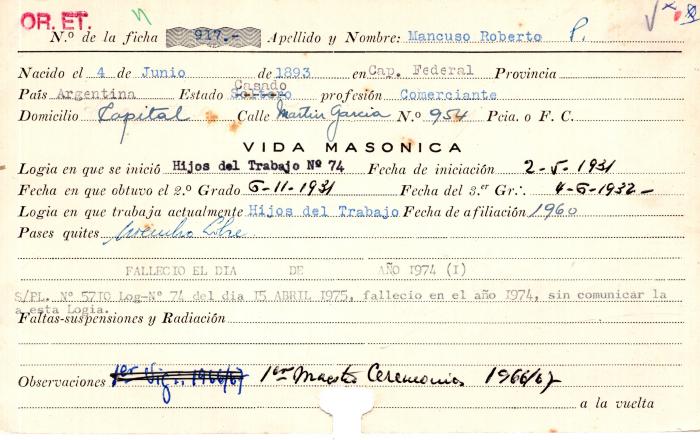 OR. ET.
N.º de la ficha 917.- Apellido y Nombre: Mancuso Roberto P.
Nacido el 4 de Junio de 1893 en Cap. Federal Provincia
Casado
País Argentina Estado Soltero profesión Comerciante
Domicilio Capital Calle Martin Garcia N.º 954 Pcia. o F. C.
VIDA MASONICA
Logia en que se inició Hijos del Trabajo Nº 74 Fecha de iniciación 2-5-1931
Fecha en que obtuvo el 2.º Grado 6-11-1931 Fecha del 3.er Gr∴ 4-6-1932-
Logia en que trabaja actualmente Hijos del Trabajo Fecha de afiliación 1960
Pases quites Miembro Libre
FALLECIO EL DIA DE AÑO 1974 (I)
S/PL. Nº 5710 Log-Nº 74 del dia 15 ABRIL 1975, fallecio en el año 1974, sin comunicar la
a esta Logia.
Faltas-suspensiones y Radiación
Observaciones 1er Vig. 1966/67 1er Maestro Ceremonias 1966/67
a la vuelta